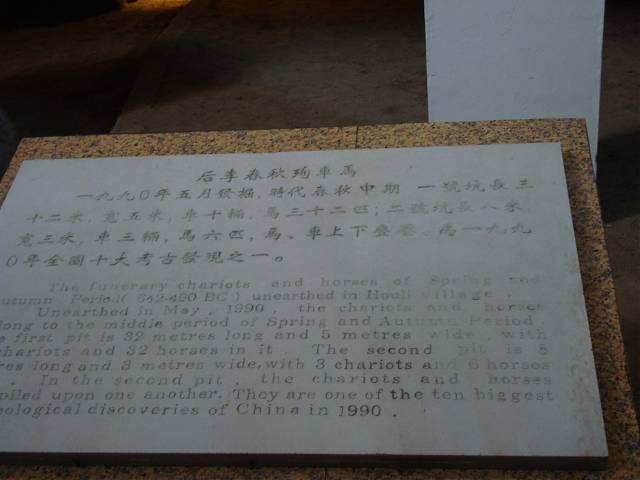 后李春秋殉車馬
一九九〇年五月發掘,時代春秋中期 一號坑長三
十二米,寬五米,車十輛,馬三十二匹;二號坑長八米
寬三米,車三輛,馬六匹,馬、車上下疊壓、爲一九九
〇年全國十大考古發現之一。
The funerary chariots and horses of Spring and
Autumn Period( 682-490 BC ) unearthed in Houli village .
Unearthed in May , 1990 , the chariots and horses
long to the middle period of Spring and Autumn Period
e first pit is 32 metres long and 5 metres wide , with
chariots and 32 horses in it . The second pit is 8
res long and 3 metres wide,with 3 chariots and 6 horses
. In the second pit , the chariots and horses
piled upon one another. They are one of the ten biggest
eological discoveries of China in 1990 .